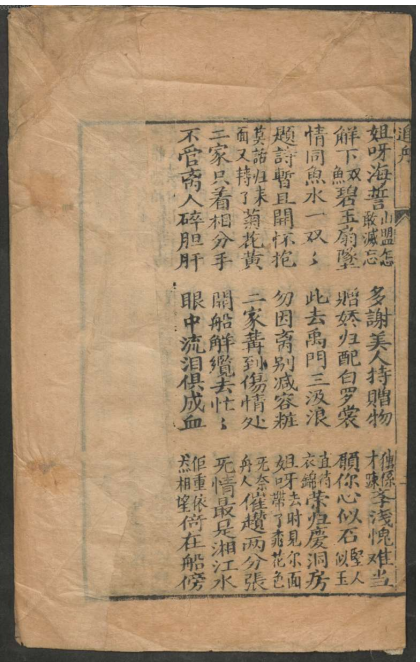 追舟
姐呀海誓山盟怎敢滅忘 多謝美人持贈物 才疎学浅愧难当
解下双魚碧玉扇墜 贈娇归配白罗裳 願你心似石堅人似玉
情同魚水一双々 此去禹門三汲浪 直待衣錦荣归慶洞房
题詩暫且開怀抱 勿因离别减容粧 姐呀去時見尔面帶了桃花色
莫話归来面又持了菊花黄 二家講到傷情处 死奈舟人催趲两分張
二家只着相分手 開船解纜去忙々 死情最是湘江水
不管离人碎胆肝 眼中流泪俱成血 佢重依然相望倚在船傍